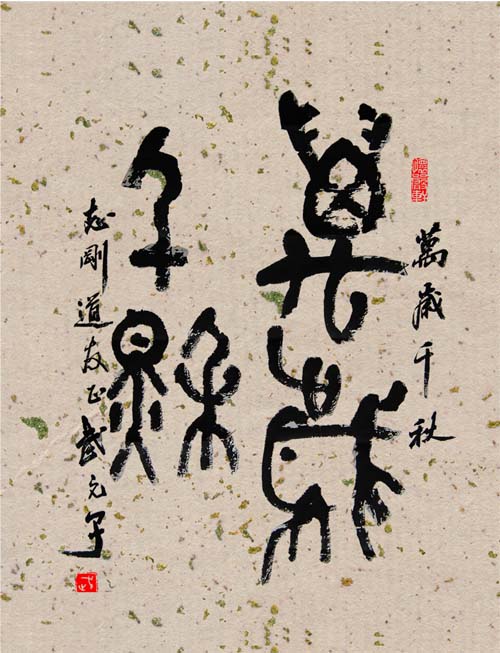 萬歲千秋
萬歲
千秋
志剛道友正武元子